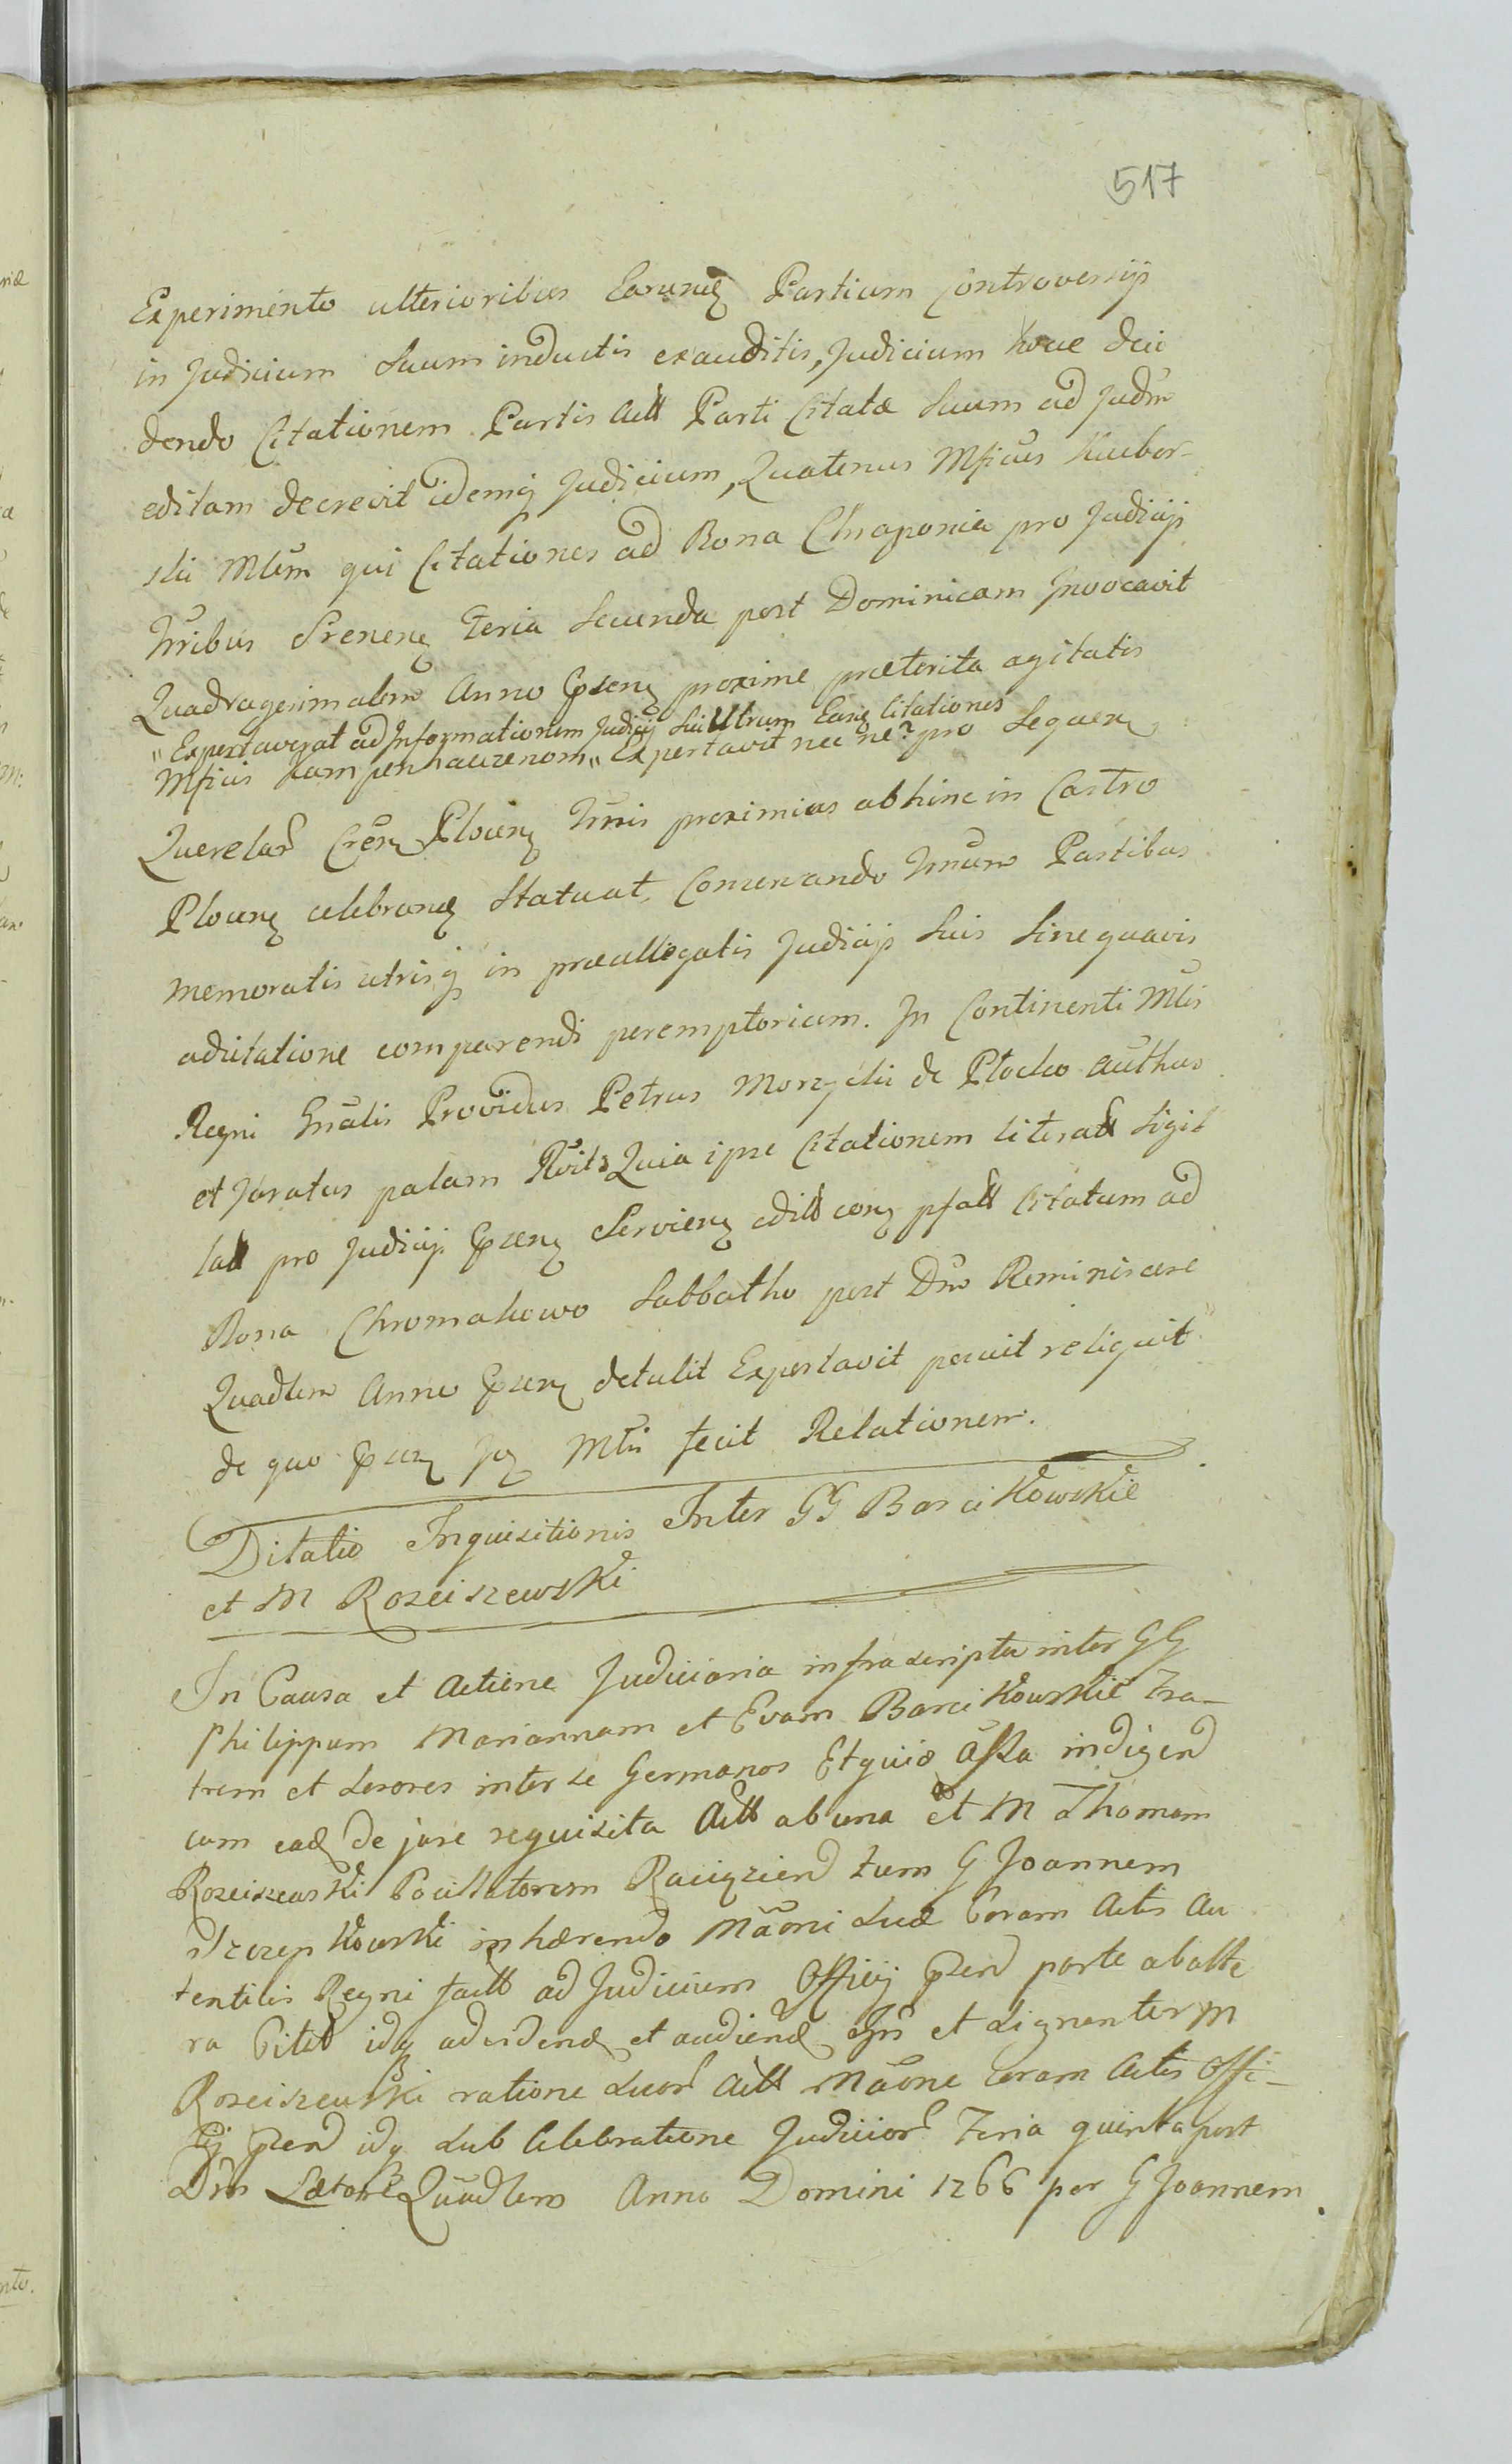 517
Experimento ulterioribus Earund Partium Controversijs
in Judicium Suum inductis exauditis, Judicium hocce deci
dendo Citationem Partis Actt Parti Citatæ Suum ad Judm
editam decrevit idemq Judicium, Quatenus Mficus Kubor-
ski Mlem qui Citationes ad Bona Chraponia pro Judicijs
Tmribus Srenen Feria Secunda post Dominicam Invocavit
Quadragesimalem Anno Præsen proxime præterita agitatis
"Exportaverat ad Informationem Judicij Sui Utrum Easq Citationes
Mficus "Exportavit nec ne? pro Sequen
Querelar Cren Plocen Tmis proximius abhinc in Castro
Plocen celebrand Statuat, Conservando Tmum Partibus
memoratis utrisq in præallegatis Judicijs Suis Sine quavis
adcitatione comparendi peremptorium. In Continenti Mlis
Regni Gnalis Providus Petrus Morzycki de Płocko Authus
et Juratus palam Rvit Quia ipse Citationem literatt Sigil
latt pro Judicijs Præsen Servien editt con psatt Citatum ad
Bona Chromakowo Sabbatho post Dm Reminiscere
Quadlem Anno Præsen detulit Exportavit posuit reliquit
de quo Præsen Mlis fecit Relationem.
Dilatio Inquisitionis Inter GG Barcikowskie
et M Rosciszewski
In Causa et Actione Judiciaria infrascripta inter GG
Philippum Mariannam et Evam Barcikowskie Fra-
trem et Sorores inter se Germanos Et quid Assa indigend
cum ead de jure requisita Actt ab una et M Thomam
Rosciszewski Pocillatorem Raciązien tum G Joannem
Szczepkowski inhærendo Maoni Suæ Coram Actis Au
tenticis Regni factt ad Judicium Officij Præsen parte ab alte
ra Citt idq ad videnđ et audienđ et Signanter M
Rosciszewski ratione Suor Actt Maone Coram Actis Offi-
cij Præsen idq Sub Celebratione Judicior Feria quinta post
Dm Lætare Quadlem Anno Domini 1766 per G Joannem